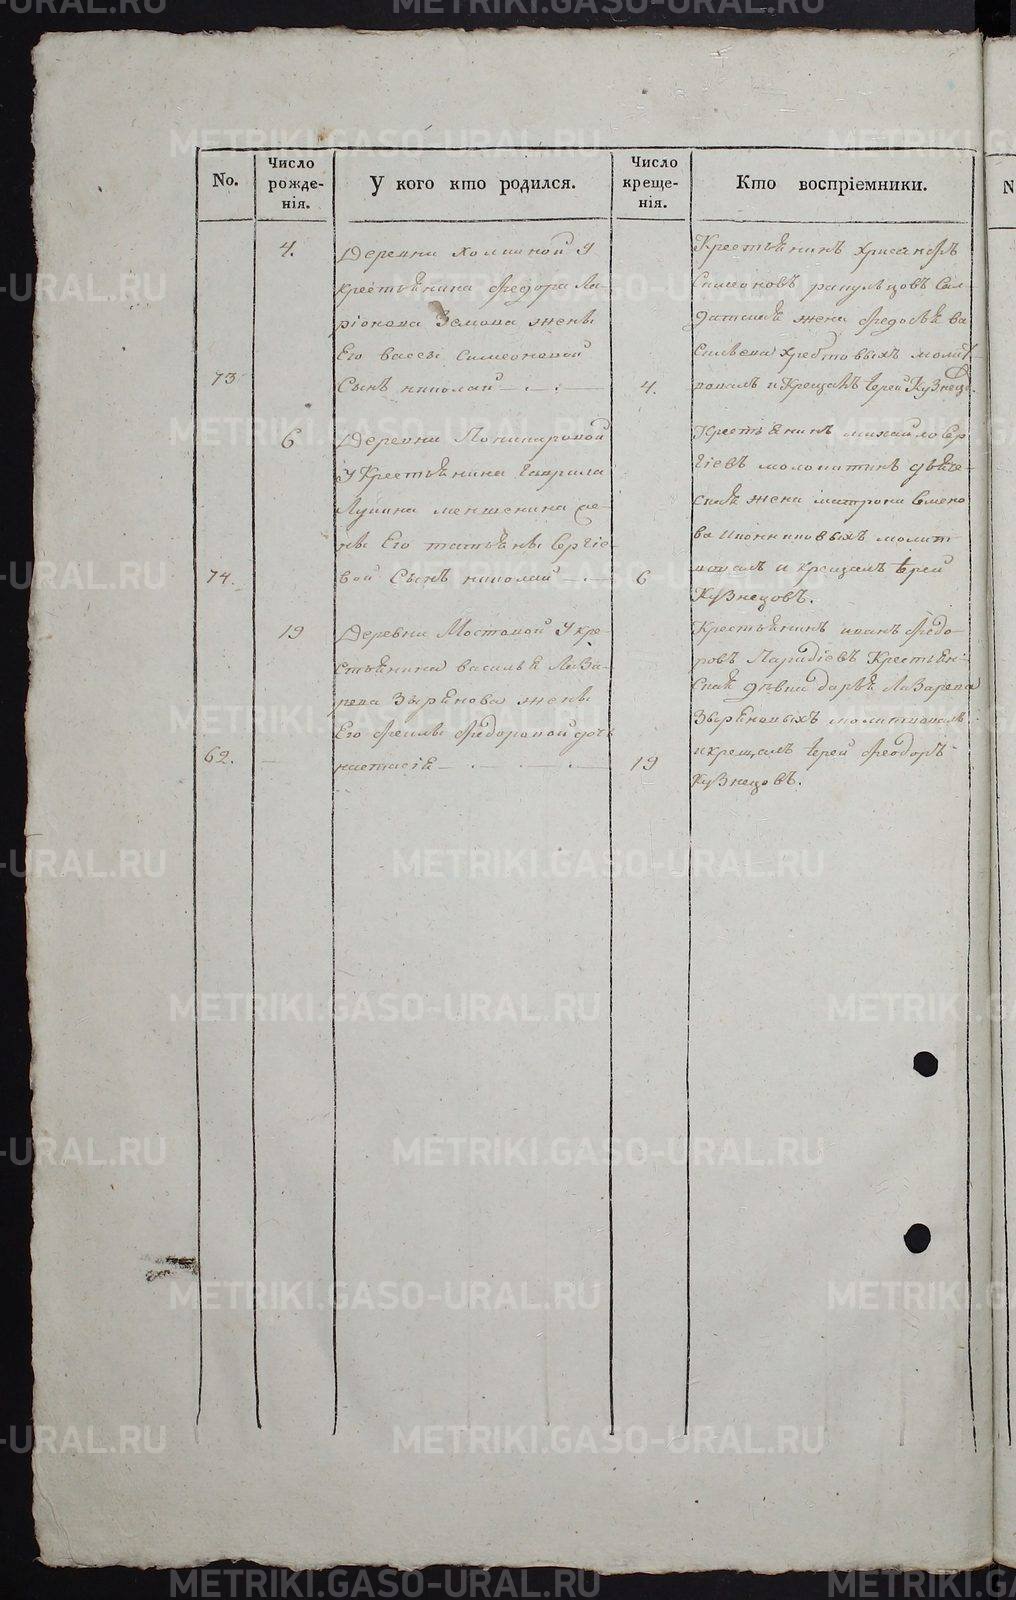 No.
Число рожде-нія.
У кого кто родился.
Число креще-нія.
Кто воспріемники.
4.
Деревни У
крестьянина Федора Ла-
ріонова Земова жены
Его вассы Симеоновой
73 Сынъ николай
4.
Крестьянинъ
Симеоновъ Сол-
датская жена Федосья ва
сильева молит
вовалъ и Крещалъ Іерей Кузнецо.
6
Деревни
У Крестьянина Гаврила
Лупина меншенина же-
ны Его татьяны Сергіе-
74. вой Сынъ николай
6
Крестьянинъ михайло Сер
гіевъ
ская жена матрона Семено
ва молит
вовалъ и крещалъ Іерей
Кузнецовъ.
19
Деревни Мостовой У кре-
стьянина василья Лаза-
рева Зырянова жены
Его Феклы Федоровой дочь
62. настасія
19
Крестьянинъ иванъ Федо-
ровъ Крестьян-
ская дѣвка дарья Лазарева
Зыряновыхъ молитвовалъ
и крещалъ Іерей Феодоръ
Кузнецовъ.
METRIKI.GASO-URAL.RU